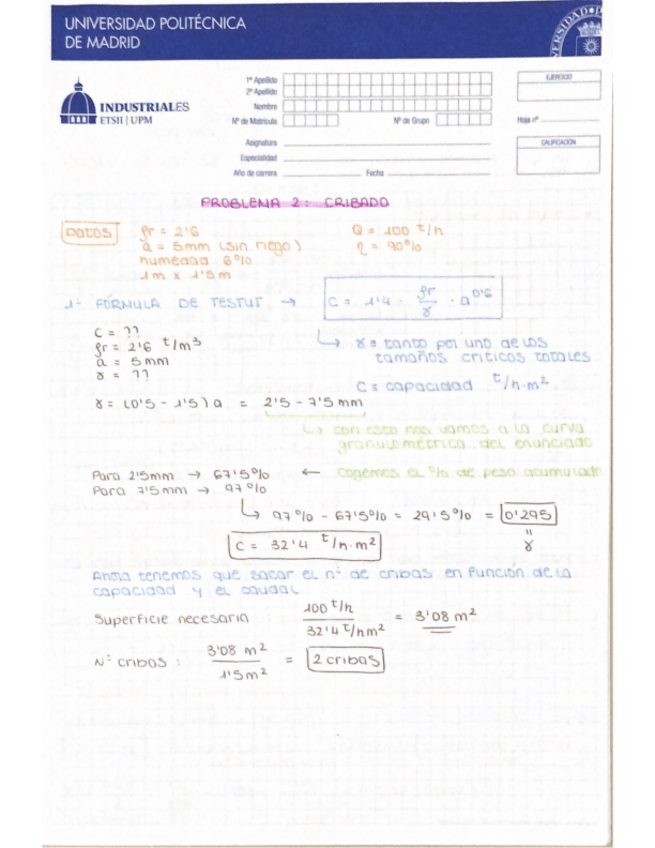 UNIVERSIDAD POLITÉCNICA
DE MADRID
INDUSTRIALES
ETSII | UPM
1º Apellido
2º Apellido
Nombre
Nº de Matrícula
Nº de Grupo
Asignatura
Especialidad
Año de carrera
Fecha
EJERCICIO
Hoja nº
CALIFICACIÓN
PROBLEMA 2: CRIBADO
DATOS
ρr = 2'6
Q = 100 t/h
a = 5mm (sin riego)
η = 90%
humedad 6%
1m x 1'5m
1- FÓRMULA DE TESTUT → C = 1'4 · ρr/γ · a^0'6
C = ??
ρr = 2'6 t/m³
a = 5mm
γ = ??
↳ γ = tanto por uno de los
tamaños criticos totales
C = capacidad t/h·m²
γ = (0'5 - 1'5) a = 2'5 - 7'5 mm
↳ con esto nos vamos a la curva
granulométrica del enunciado
Para 2'5mm → 67'5% ← cogemos el % de peso acumulado
Para 7'5mm → 97%
↳ 97% - 67'5% = 29'5% = 0'295
"
γ
C = 32'4 t/h·m²
Ahora tenemos que sacar el nº de cribas en función de la
capacidad y el caudal
Superficie necesaria : 100 t/h / 32'4 t/hm² = 3'08 m²
Nº cribas : 3'08 m² / 1'5m² = 2 cribas